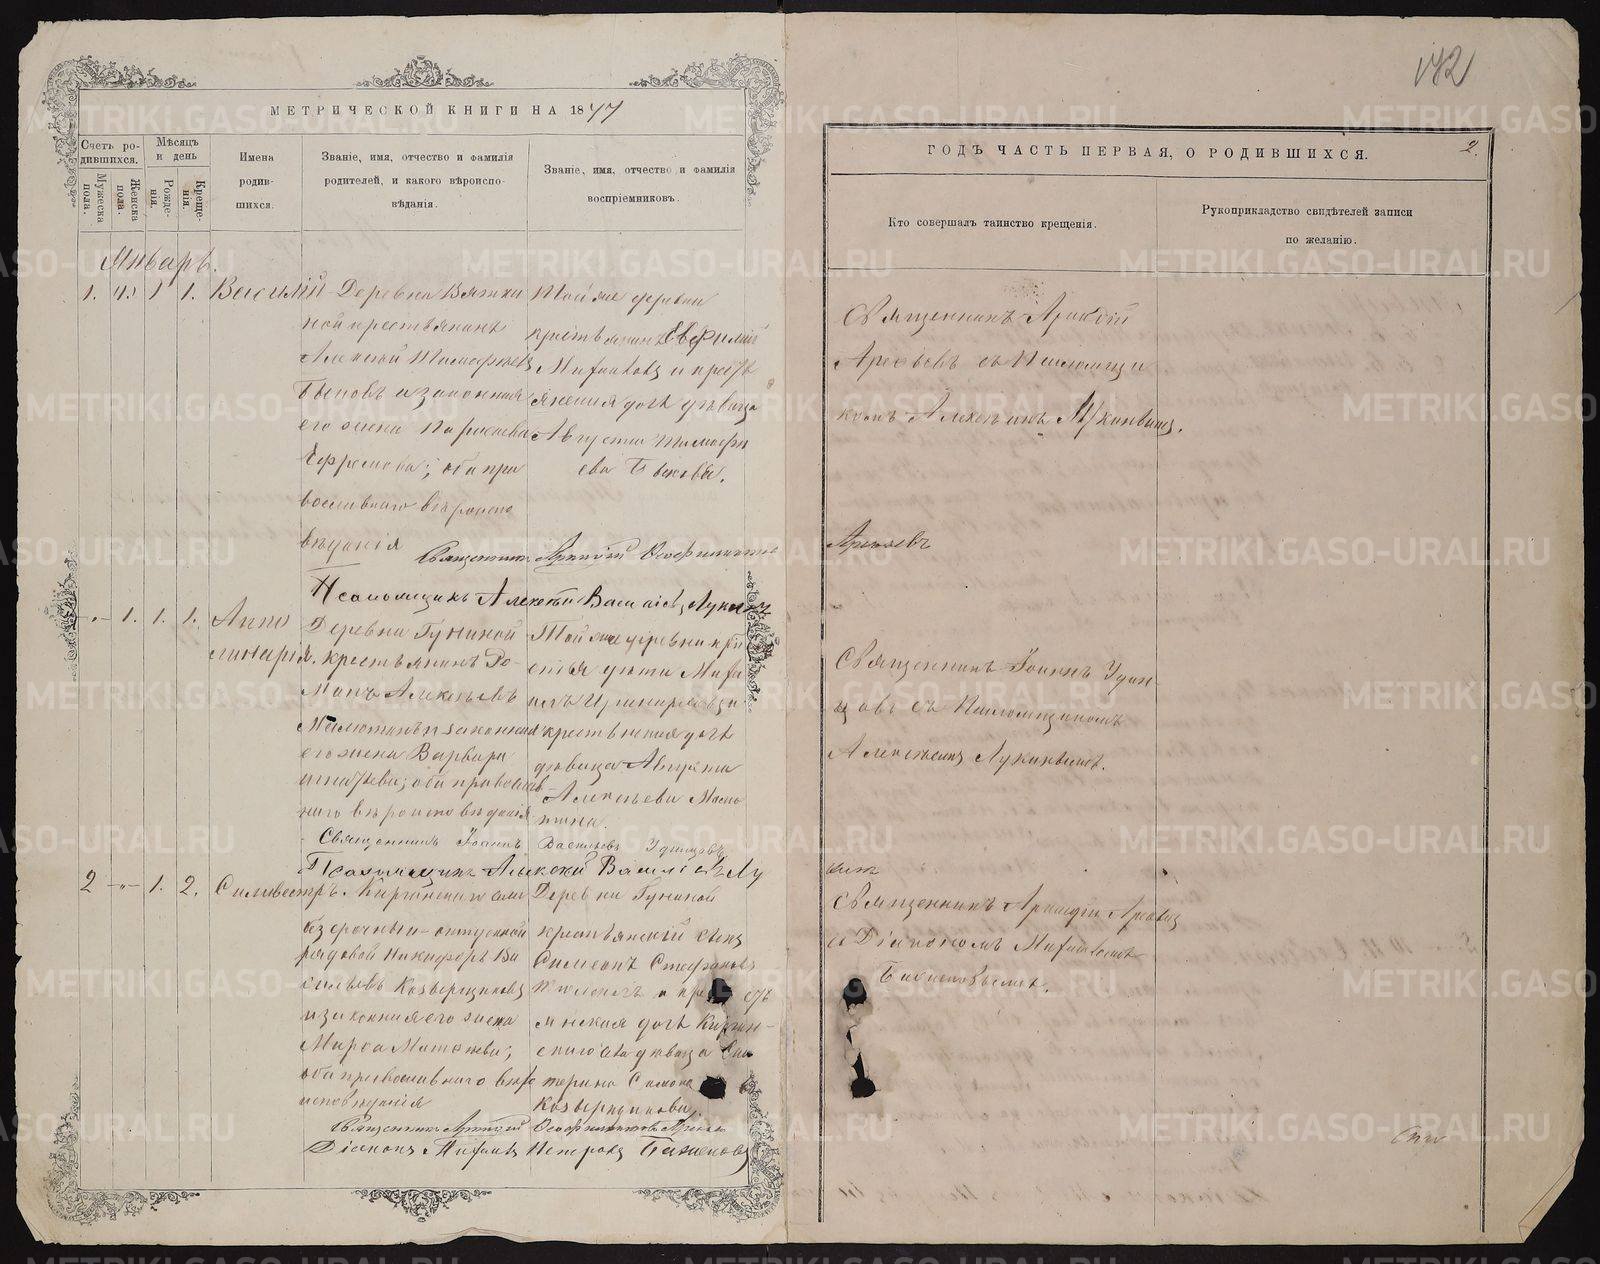 142
МЕТРИЧЕСКОЙ КНИГИ НА 1877
ГОДЪ ЧАСТЬ ПЕРВАЯ, О РОДИВШИХСЯ.
2.
Счетъ ро-
дившихся.
Мужеска
пола.
Женска
пола.
Мѣсяцъ
и день
Рожде-
нія.
Креще-
нія.
Имена
родив-
шихся.
Званіе, имя, отчество и фамилія
родителей, и какого вѣроиспо-
вѣданія.
Званіе, имя, отчество и фамилія
воспріемниковъ.
Кто совершалъ таинство крещенія.
Рукоприкладство свидѣтелей записи
по желанію.
Январь.
1. 1 1. Василій
Деревни
ной крестьянинъ
Алексѣй Тимофѣевъ
Быковъ и законная
его жена
Ефремова; оба пра
вославнаго вѣроиспо
вѣданія
Той же деревни
крестьянинъ Евфимій
и кресть
янская дочь дѣвица
Августа Тимофе
ева Быкова.
Священникъ Аркадій
Арефьевъ съ Псаломщи
комъ Алексѣемъ Лукиныхъ.
Священникъ Аркадій Феофилактовъ
Арефьевъ
Псаломщикъ Алексѣй Васильевъ Лукинъ
1. 1. 1. Апол
линарія.
Деревни Гуниной
крестьянинъ Ро-
манъ Алексѣевъ
Малютинъ и законная
его жена Варвара
Игнатьева; оба православ
наго вѣроисповѣданія
Той же деревни
крестьянская дочь
дѣвица Августа
Алексѣева Малю
тина.
Священникъ Іоаннъ Удин
цовъ съ Псаломщикомъ
Алексѣемъ Лукинымъ.
Священникъ Іоаннъ Васильевъ Удинцовъ
Псаломщикъ Алексѣй Васильевъ Лу
кинъ
2 - 1. 2. Сильвестръ.
Киргинскаго села
безсрочный-отпускной
рядовой Никифоръ Ва
сильевъ Козырщиковъ
и законная его жена
Марѳа Матвѣева;
оба православнаго вѣро
исповѣданія
Деревни Гуниной
крестьянскій сынъ
Симеонъ Стефановъ
дочь Киргин-
скаго села дѣвица Ека
терина Симонова
Козырщикова.
Священникъ Аркадій Арефьевъ
съ Діакономъ Михаиломъ
Баженовымъ.
Священникъ Аркадій Феофилактовъ Арефьевъ
Діаконъ Михаилъ Петровъ Баженовъ
METRIKI.GASO-URAL.RU